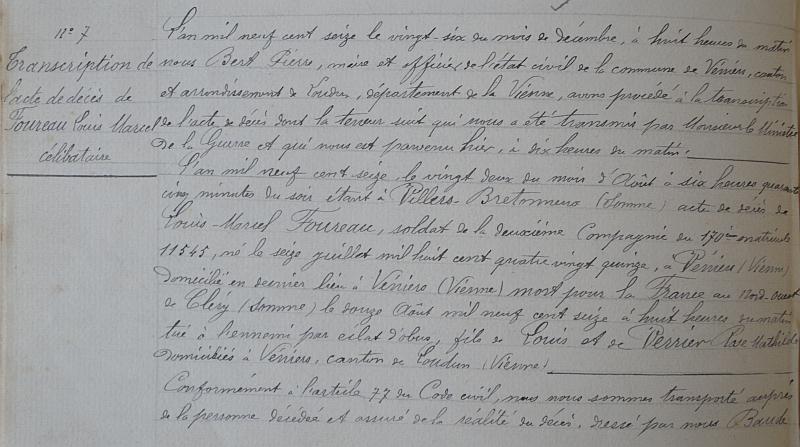 n° 7
Transcription de
l'acte de décès de
Foureau Louis Marcel
célibataire
L'an mil neuf cent seize le vingt-six du mois de décembre, à huit heures du matin
nous Bert Pierre, maire et officier de l'état civil de la commune de Véniers, canton
et arrondissement de Loudun, département de la Vienne, avons procédé à la transcription
de l'acte de décès dont la teneur suit qui nous a été transmis par Monsieur le Ministre
de la Guerre et qui nous est parvenu hier, à dix heures du matin.
L'an mil neuf cent seize, le vingt deux du mois d'Août à six heures quarante
cinq minutes du soir étant à Villers-Bretonneux (Somme) acte de décès de
Louis-Marcel Foureau, soldat de la deuxième Compagnie du 170è matricule
11545, né le seize juillet mil huit cent quatre vingt quinze, à Véniers (Vienne)
domicilié en dernier lieu à Véniers (Vienne) mort pour la France au Nord-Ouest
de Cléry (Somme) le douze Août mil neuf cent seize à huit heures du matin
tué à l'ennemi par éclat d'obus, fils de Louis et de Perrier Rose Mathilde
domiciliés à Véniers, canton de Loudun (Vienne)
Conformément à l'article 77 du Code civil, nous nous sommes transporté auprès
de la personne décédée et assuré de la réalité du décès, dressé par nous Baude